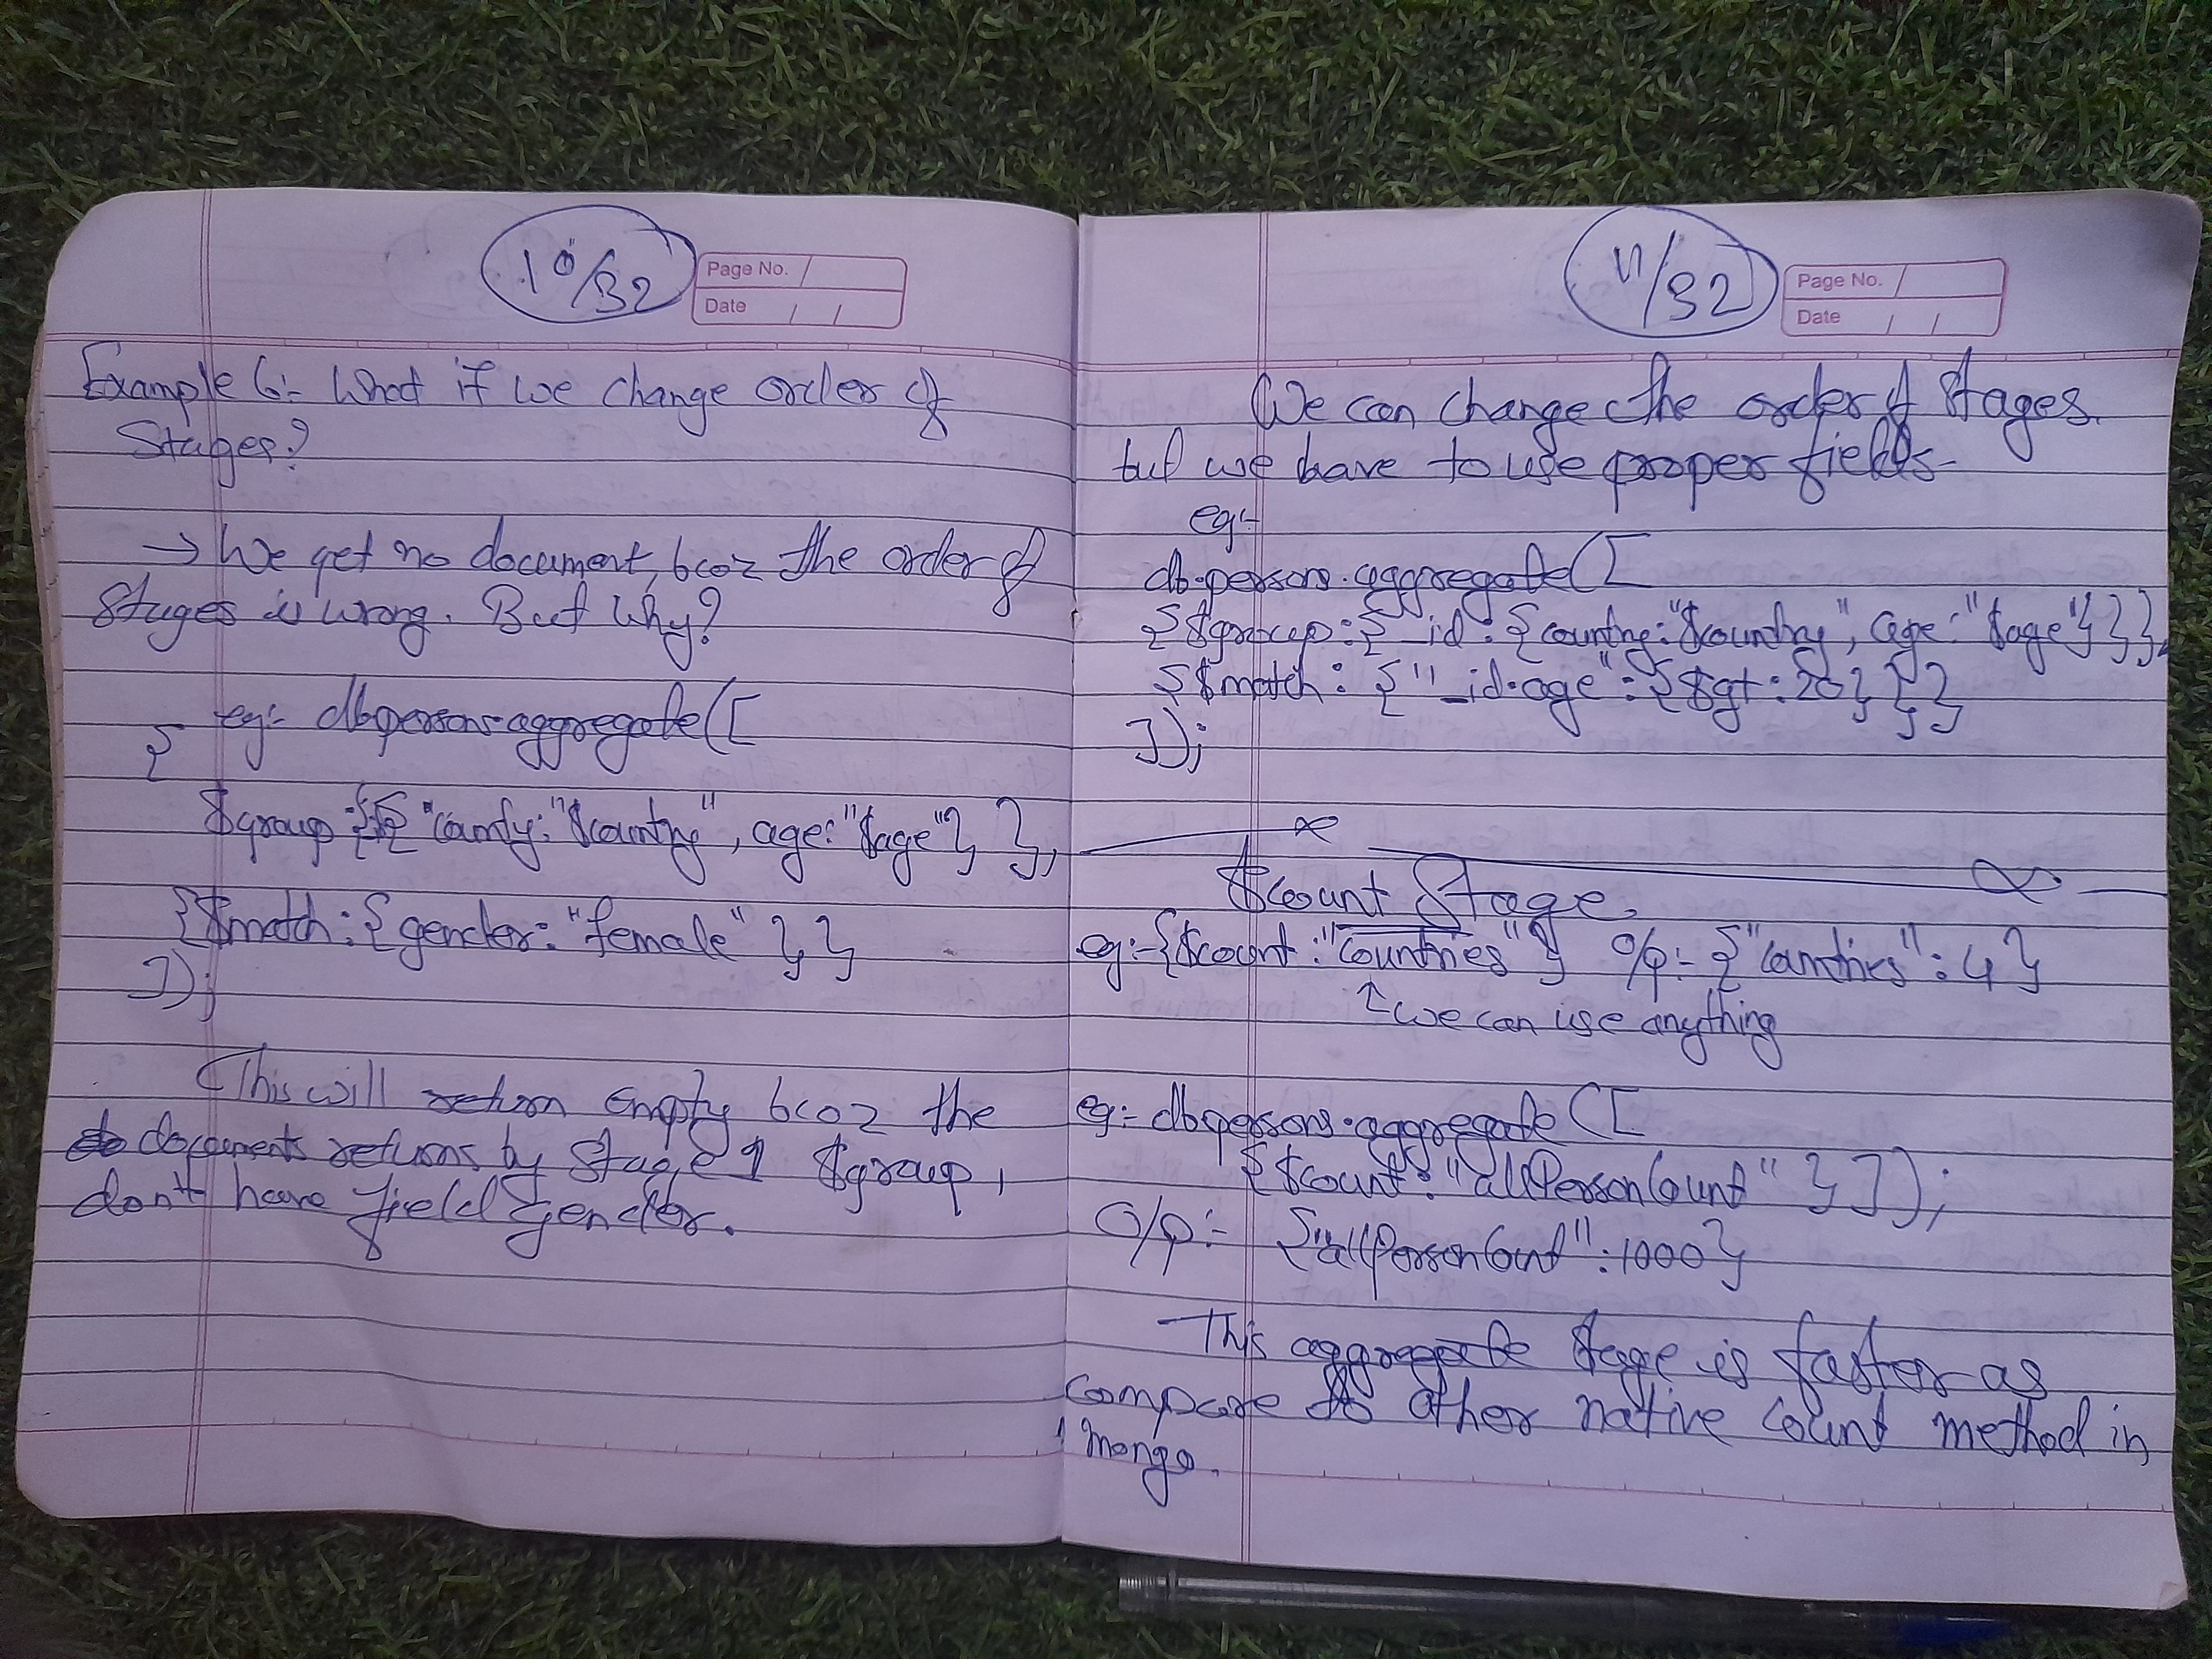 10/32
Page No.
Date / /
Example 6:- What if we change order of
stages?
→ We get no document, bcoz the order of
stages is wrong. But Why?
eg:- db.persons.aggregate([
{
$group: { "country: "$country", age: "$age" } },
{$match: { gender: "female" } }
]);
This will return empty bcoz the
documents returns by stage 1 $group,
don't have field gender.
11/32
Page No.
Date / /
We can change the order of stages.
but we have to use proper fields-
eg:-
db.person.aggregate([
{ $group: { _id: { country: "$country", age: "$age" } } },
{ $match: { "_id.age": { $gt: 20 } } }
]);
x
$count Stage.
eg:- {$count: "countries"} O/p:- { "countries": 4 }
↑ we can use anything
eg:- db.persons.aggregate([
{ $count: "allPersonCount" } ]);
O/p:- { "allPersonCount": 1000 }
This aggregate stage is faster as
compare to other native count method in
mongo.